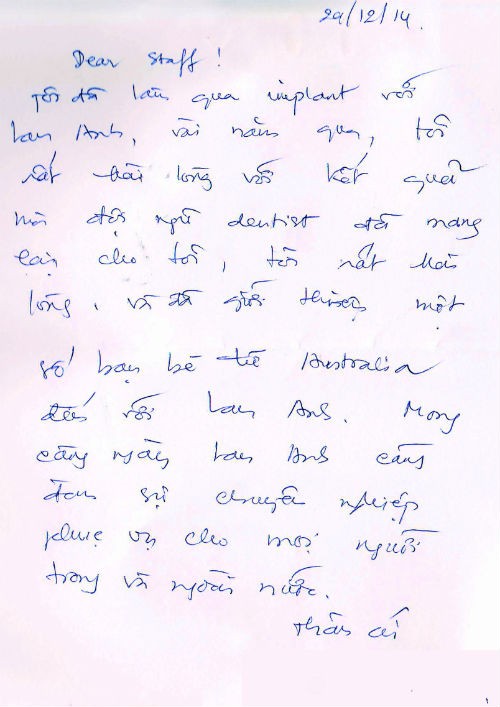 29/12/14.
Dear Staff!
Tôi đã làm qua implant với
Lan Anh, vài năm qua, tôi
rất hài lòng với kết quả
mà đội ngũ dentist đã mang
lại cho tôi, tôi rất hài
lòng, và đã giới thiệu một
số bạn bè từ Australia
đến với Lan Anh. Mong
càng ngày Lan Anh càng
sự chuyên nghiệp
phục vụ cho mọi người
trong và ngoài nước.
Thân ái